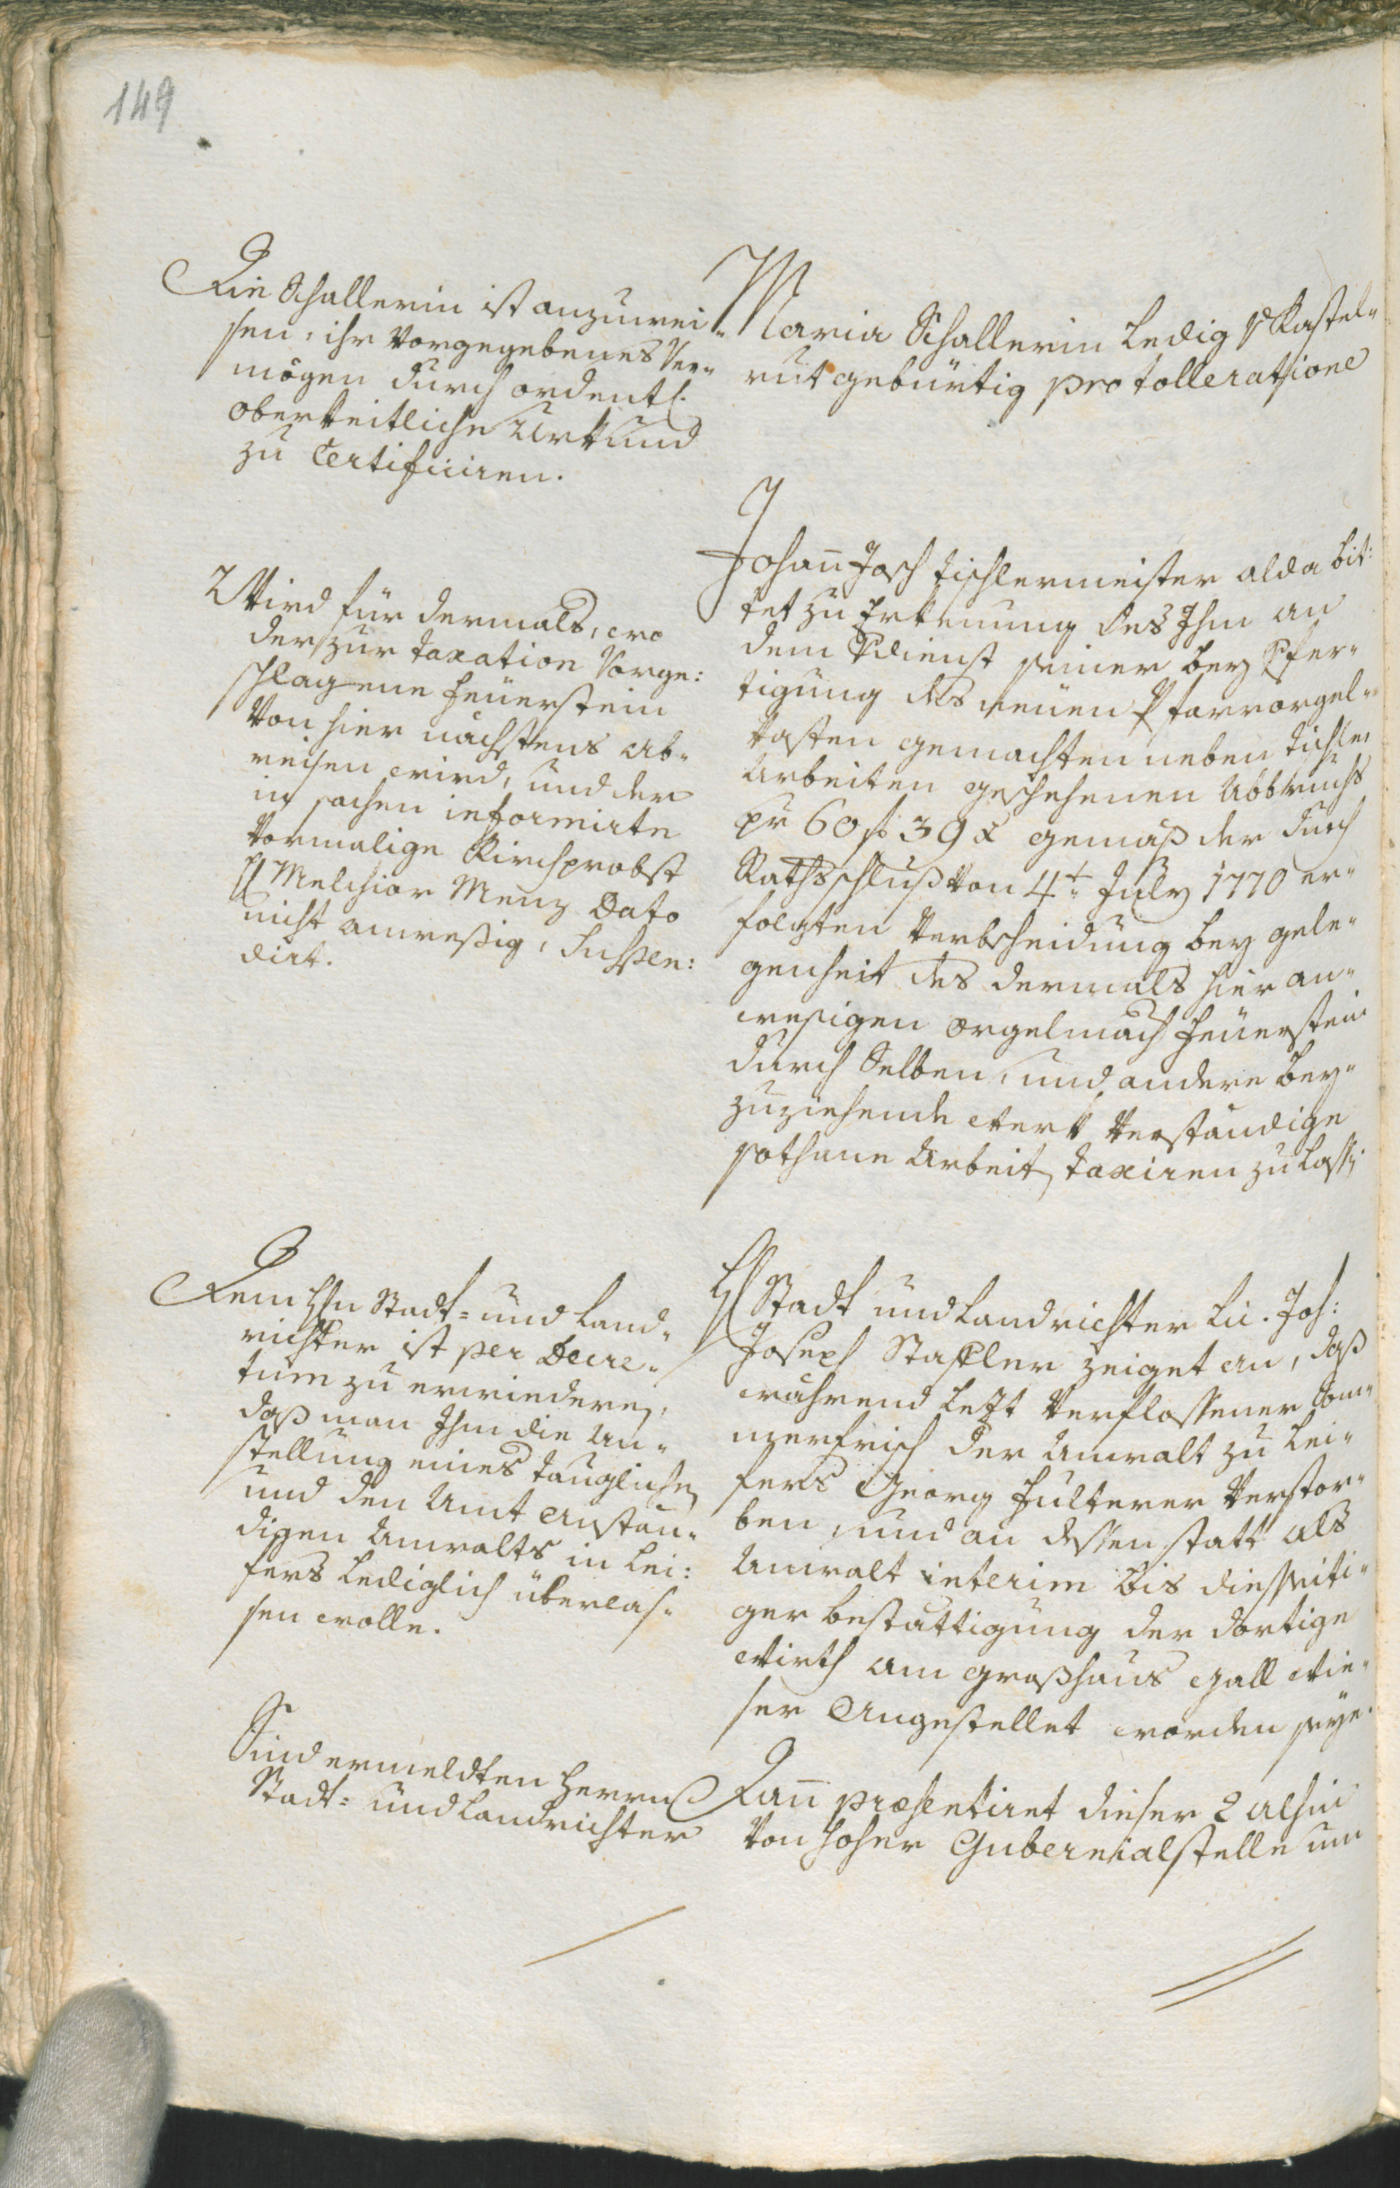 149
Die Schallerin ist anzuwei-
sen, ihr vorgegebenes Ver-
mögen durch ordentl.
oberkeitliche Urkund
zu Certificiren.
Maria Schallerin ledig v Kastel-
rut gebürtig pro tolleratione
Wird für dermals, wo
der zur taxation vorge:
schlagene Feüerstein
von hier nächstens ab-
reisen wird, und der
in sachen informirte
vormalige Kirchprobst
H Melchior Menz Dato
nicht anweßig, suspen:
dirt.
Johann Josch tischlermeister alda bit:
tet zu Erkennung des Ihm an
dem Vdienst seiner bey Vfer-
tigung des neüen Pfarrorgel-
kasten gemachten neben tischler
Arbeiten geschehenen Abbruchs
pr 60 f 39 x gemäß der durch
Rathsschluß von 4t July 1770 er-
folgten verbscheidung bey gele-
genheit des dermals hier an-
weßigen orgelmach Feüerstein
durch Selben, und andere bey-
zuziehende werk verständige
sothane Arbeit taxiren zu lassen
Dem Hn Stadt- und Land-
richter ist per Decre-
tum zu erwiedern,
daß man Ihm die An-
stellung eines tauglichen
und den Amt anstän-
digen Anwalts in Lei:
fers lediglich überlas-
sen wolle.
H Stadt und Landrichter Lic. Joh:
Joseph Stafler zeiget an, daß
während letzt verflossener Som-
merfrisch der Anwalt zu Lei-
fers Georg Fulterer verstor-
ben, und an dessen statt als
Anwalt interim bis diesseiti-
ger bestättigung der dortige
Wirth am großhaus Gall Wie-
ser Angestellet worden seye.
Sind ermeldten Herrn
Stadt- und Landrichter
Dann præsentiret dieser 2 alhin
von hoher Gubernialstelle um